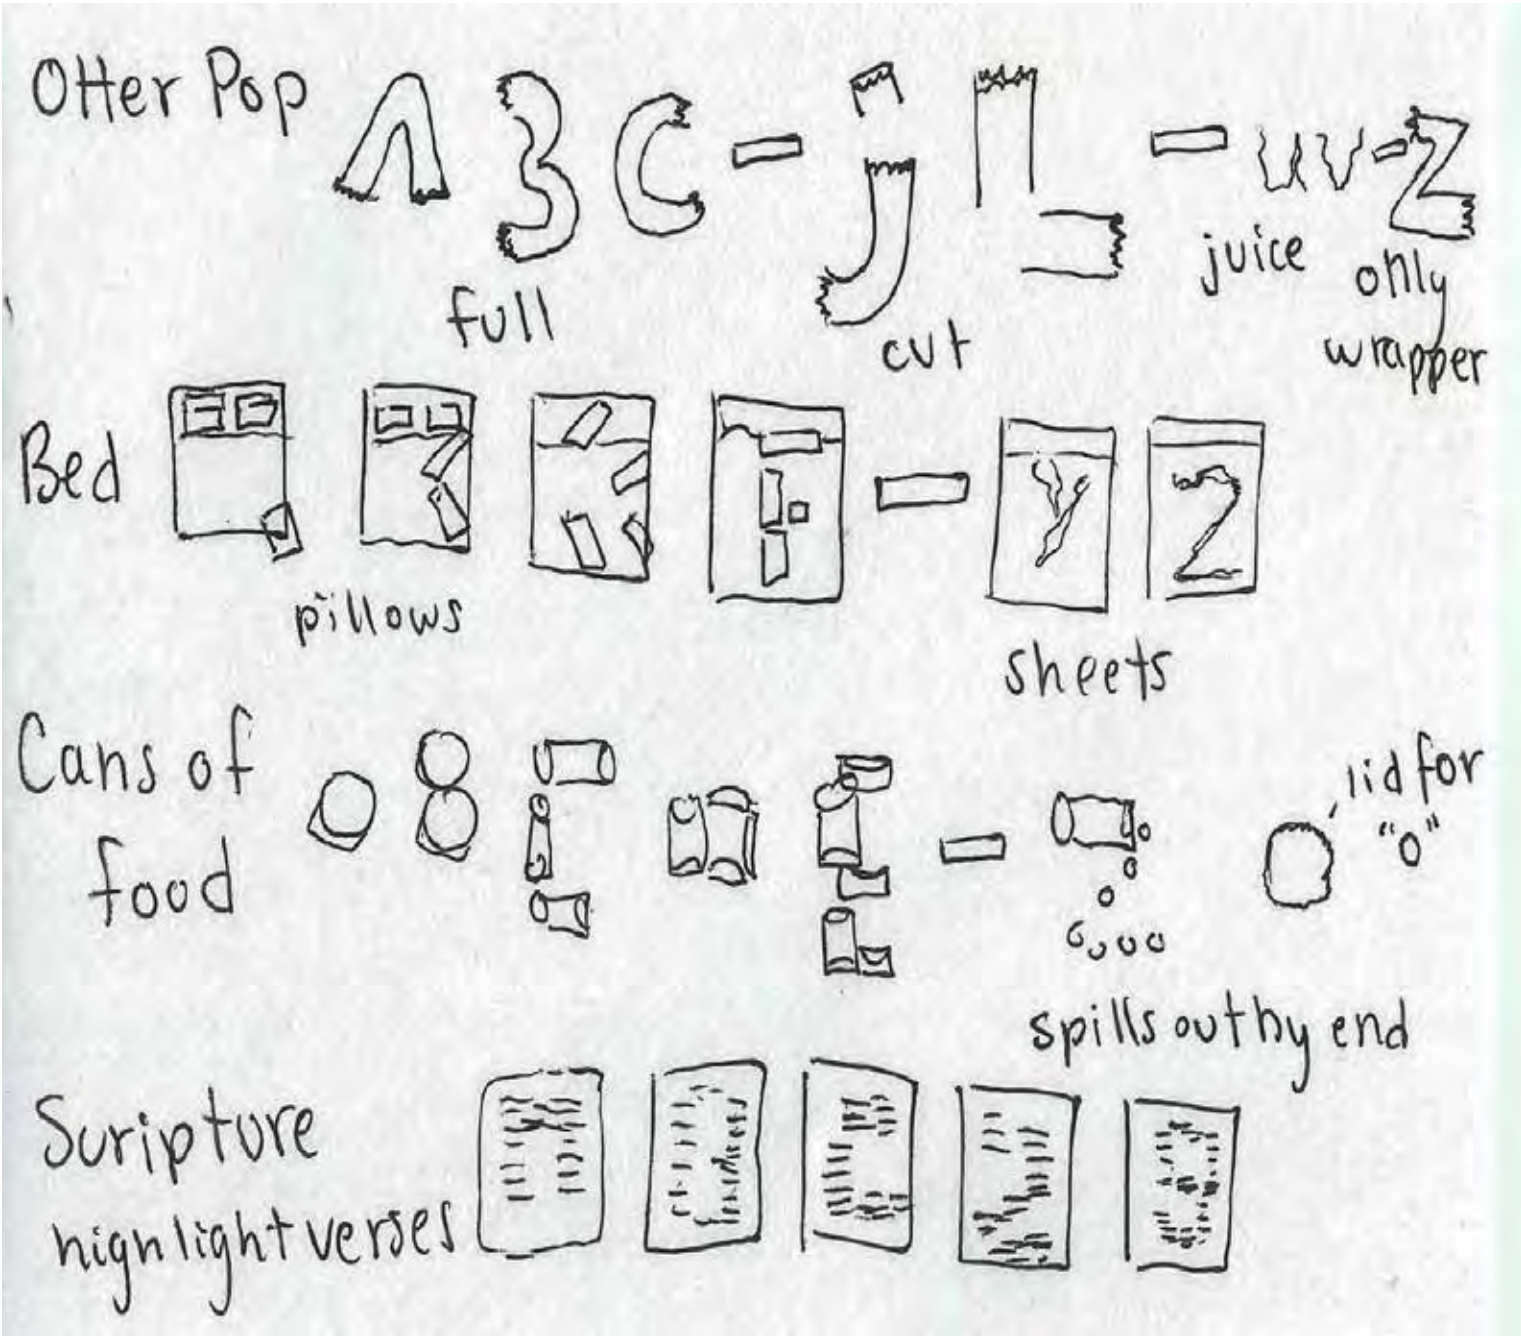 Otter Pop
A B C - j L - u v - Z
full
cut
juice
only
wrapper
Bed
Y Z
pillows
sheets
Cans of
food
lid for
"o"
spills out by end
Scripture
highlight verses